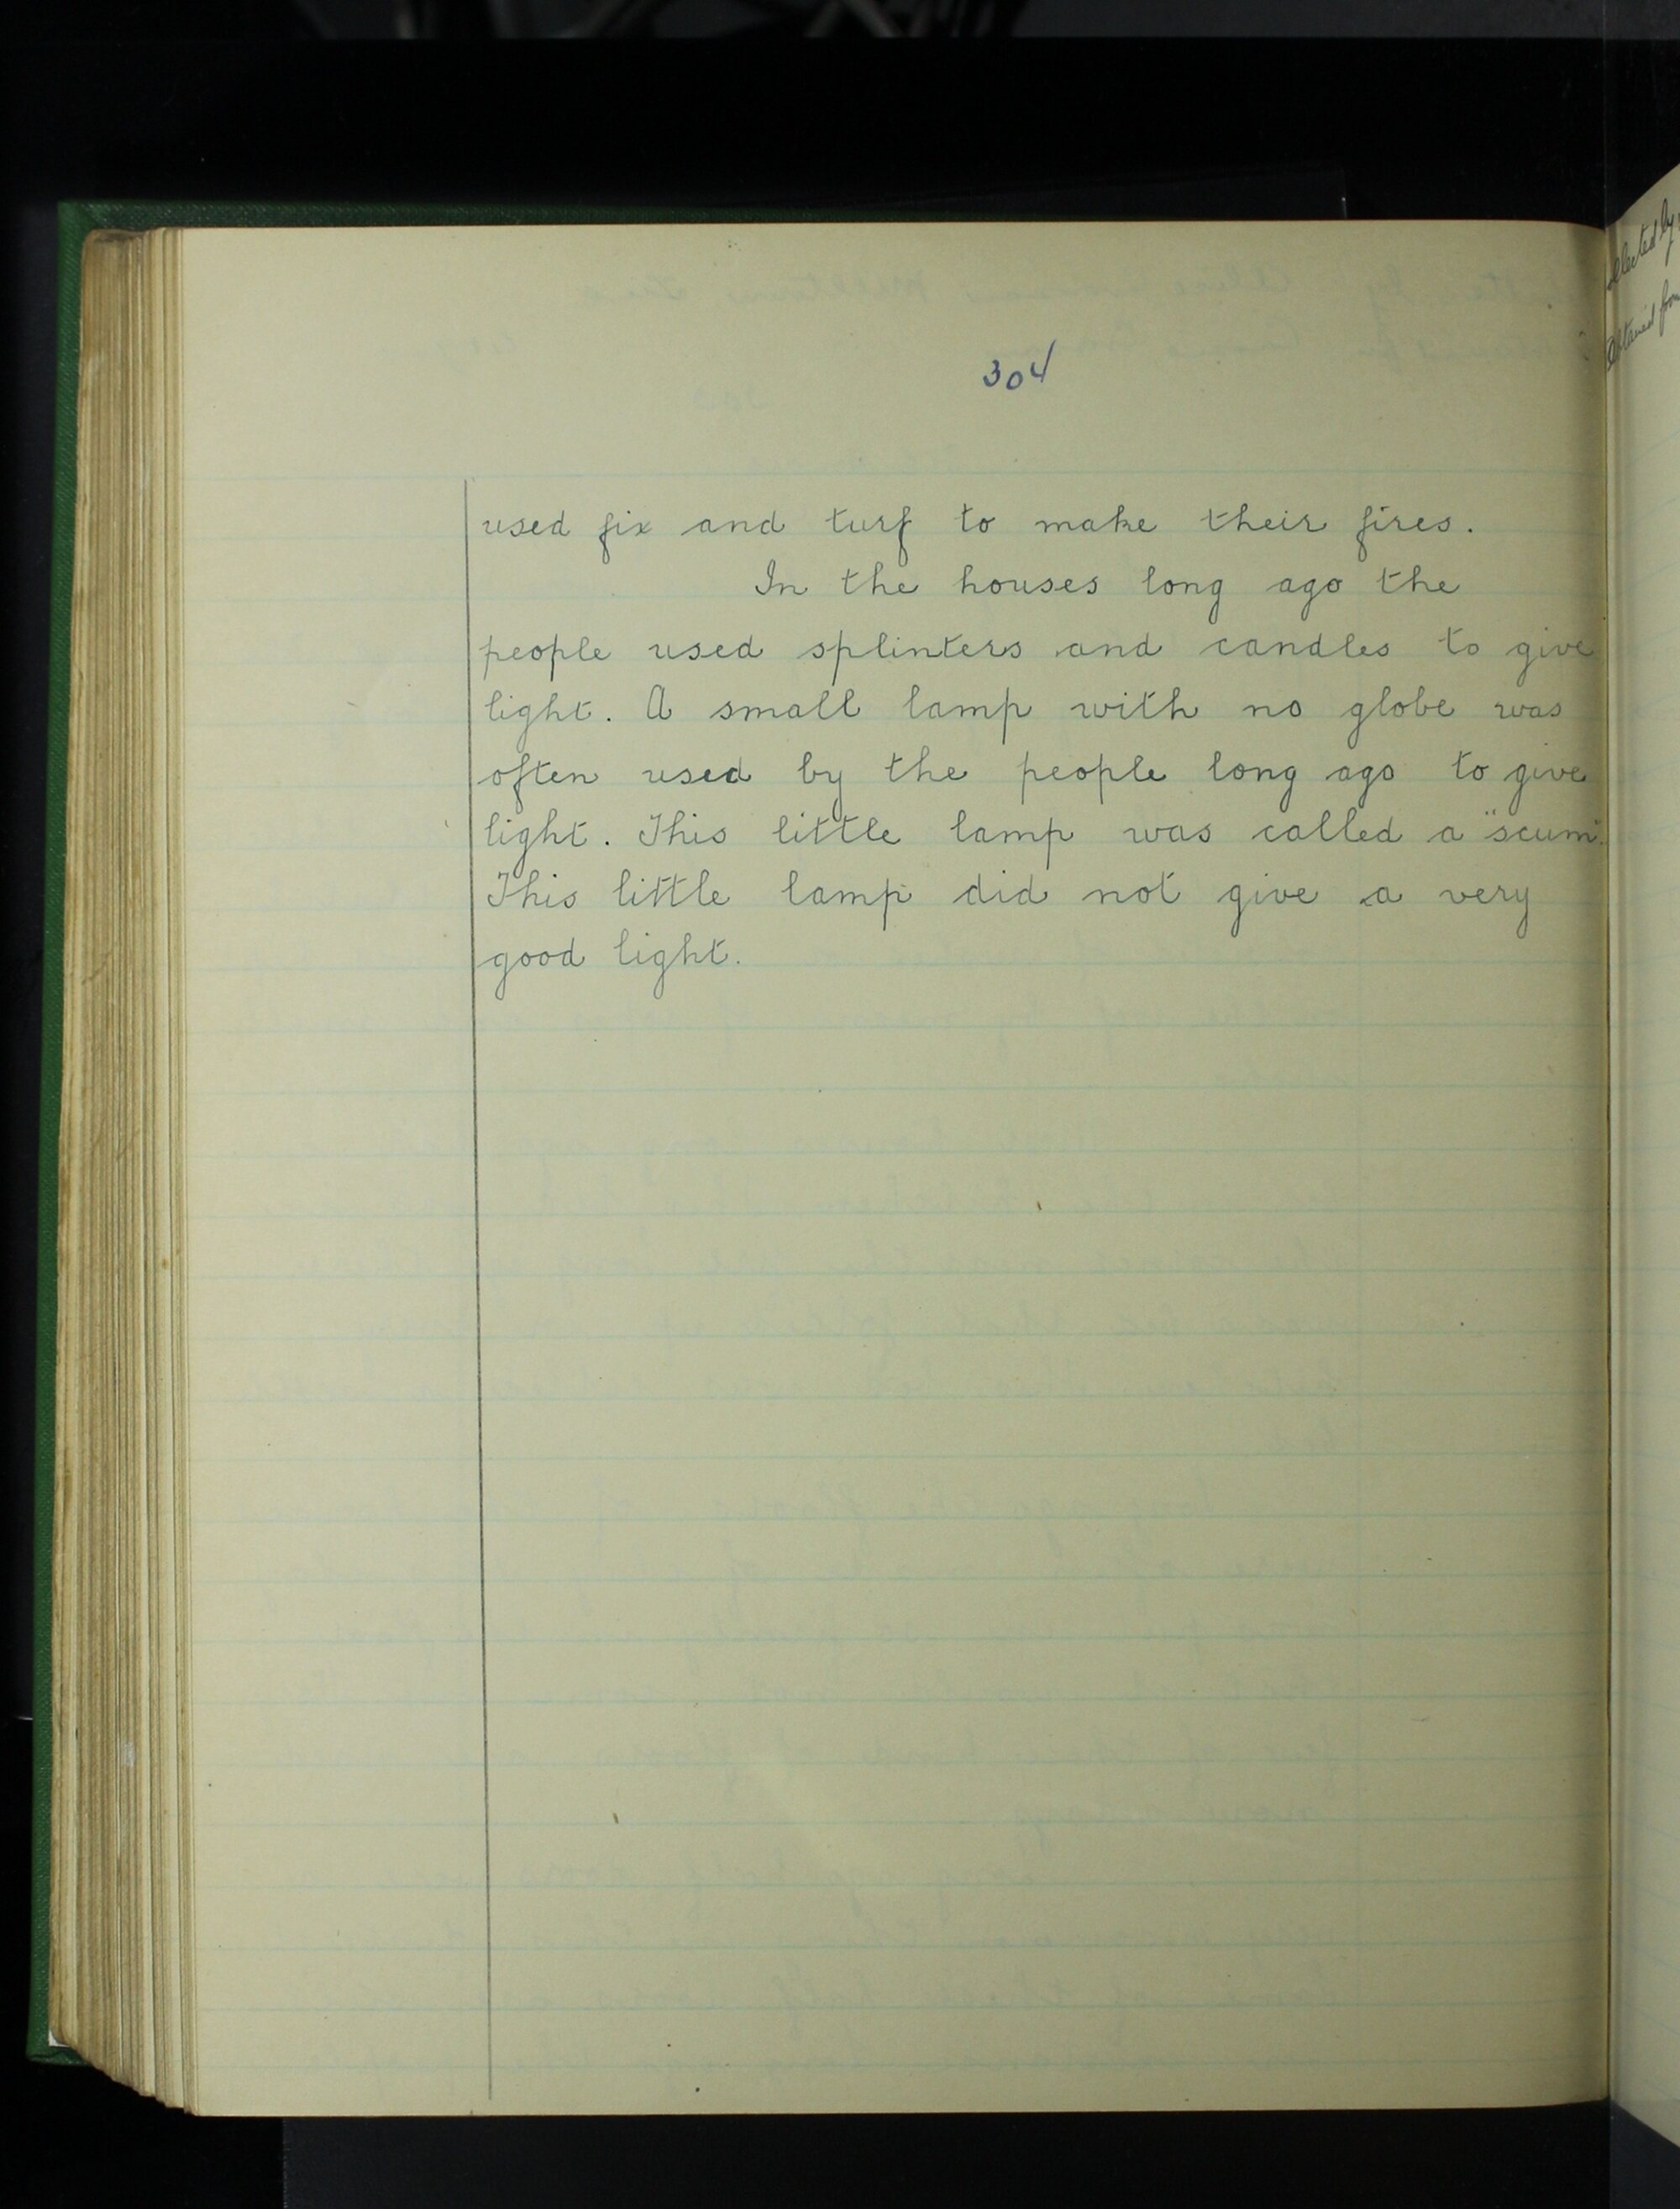 304
used fix and turf to make their fires.
In the houses long ago the
people used splinters and candles to give
light. A small lamp with no globe was
often used by the people long ago to give
light. This little lamp was called a "scum".
This little lamp did not give a very
good light.